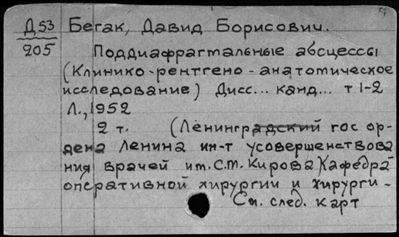 Д53 Бегак, Давид Борисович.
205
Поддиафрагмальные абсцессы
(Клинико-рентгено-анатомическое
исследование) Дисс... канд... т 1-2
Л., 1952
2 т. (Ленинградский гос ор-
дена Ленина ин-т усовершенствова
ния врачей им. С.М. Кирова) Кафедра
оперативной хирургии и хирурги-
См. след. карт